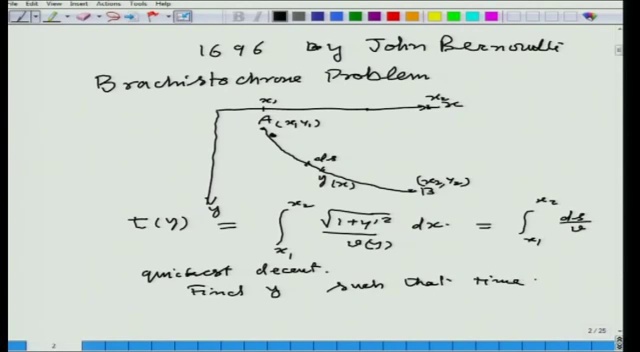 File Edit View Insert Actions Tools Help
1696 by John Bernoulli
Brachistochrone Problem
x₁ x₂ x
A(x₁,y₁)
ds
y(x)
(x₂,y₂)
B
y
t(y) = ∫_{x₁}^{x₂} √(1+y'²)/v(y) dx. = ∫_{x₁}^{x₂} ds/v
quickest decent.
Find y such that time.
2 / 25
2